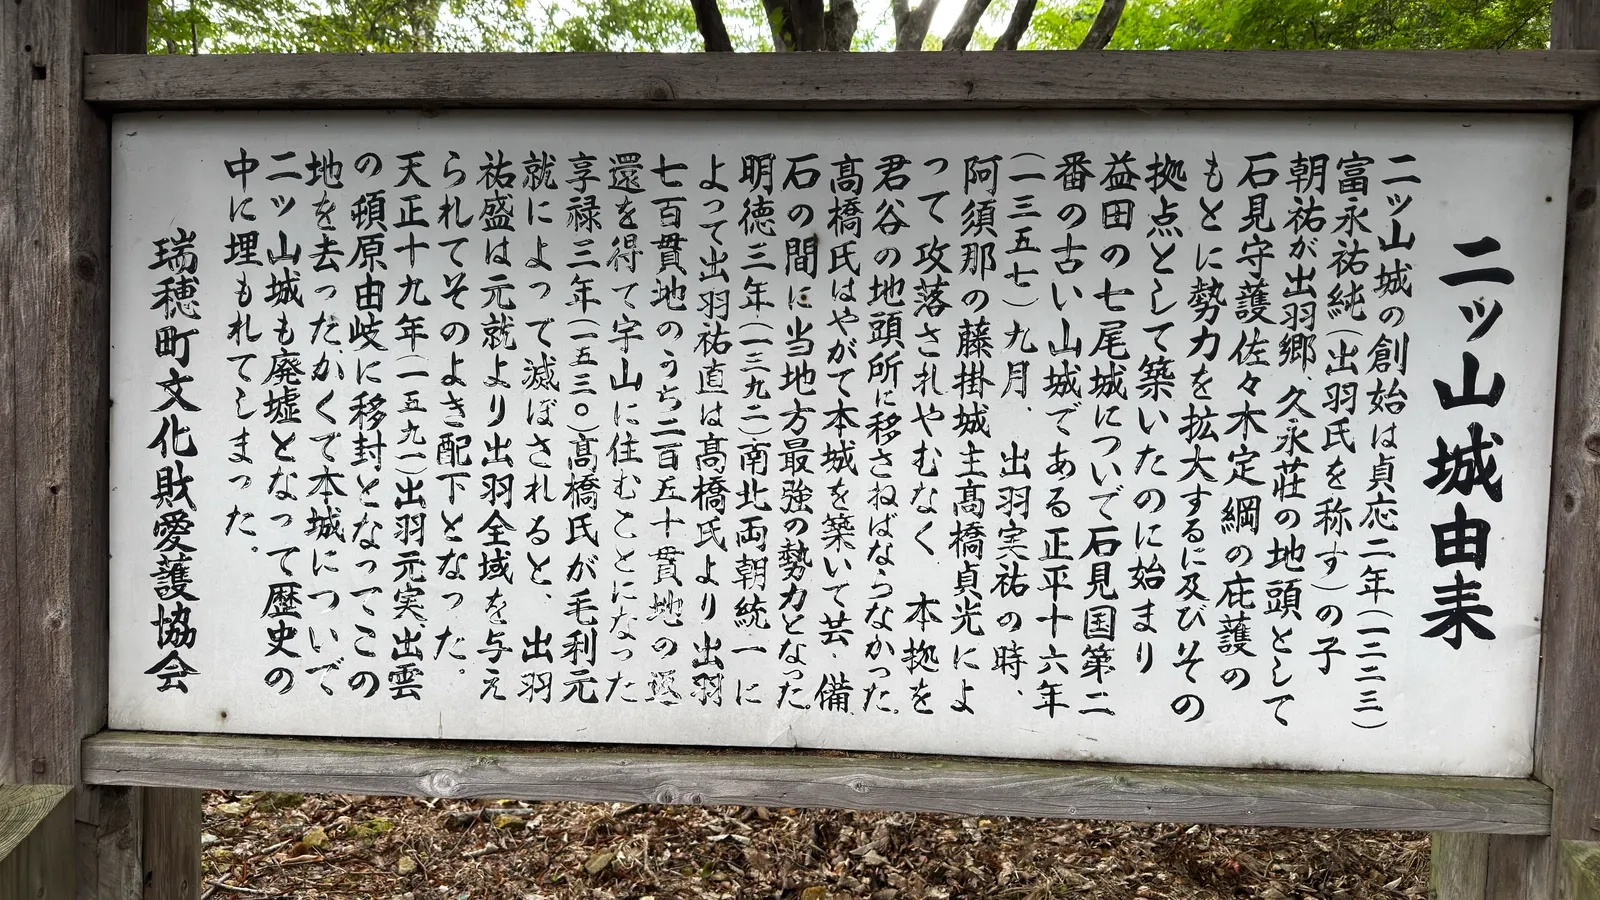 二ッ山城由来
二ッ山城の創始は貞応二年(一二二三)
富永祐純(出羽氏を称す)の子
朝祐が出羽郷、久永荘の地頭として
石見守護佐々木定綱の庇護の
もとに勢力を拡大するに及びその
拠点として築いたのに始まり
益田の七尾城についで石見国第二
番の古い山城である正平十六年
(一三五七)九月、出羽実祐の時、
阿須那の藤掛城主髙橋貞光によ
って攻落されやむなく 本拠を
君谷の地頭所に移さねばならなかった。
髙橋氏はやがて本城を築いて芸、備
石の間に当地方最強の勢力となった。
明徳三年(一三九二)南北両朝統一に
よって出羽祐直は髙橋氏より出羽
七百貫地のうち二百五十貫地の返
還を得て宇山に住むことになった
享禄三年(一五三〇)髙橋氏が毛利元
就によって滅ぼされると、出羽
祐盛は元就より出羽全域を与え
られてそのよき配下となった。
天正十九年(一五九一)出羽元実出雲
の頓原由岐に移封となってこの
地を去ったかくて本城についで
二ッ山城も廃墟となって歴史の
中に埋もれてしまった。
瑞穂町文化財愛護協会